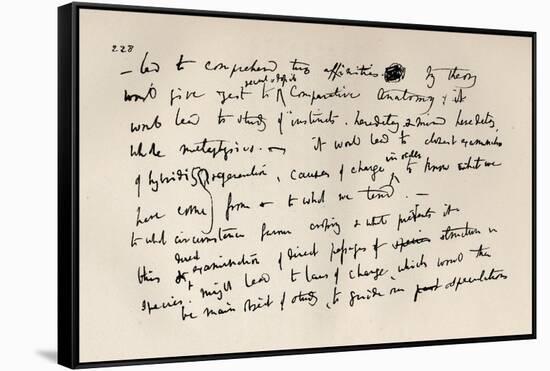 228
– led to comprehend true affinities. My theory
recent & fossil
would give zest to Comparative Anatomy, & it
would lead to study of instincts, heredity & mind heredity,
whole metaphysics. – it would lead to closest examination
in order
of hybridity generation, causes of change to know what we
have come from & to what we tend. –
to what circumstances favour crossing & what prevents it
this & examination of direct passages of species structure in
species, might lead to laws of change, which would then
be main object of study, to guide our past speculations